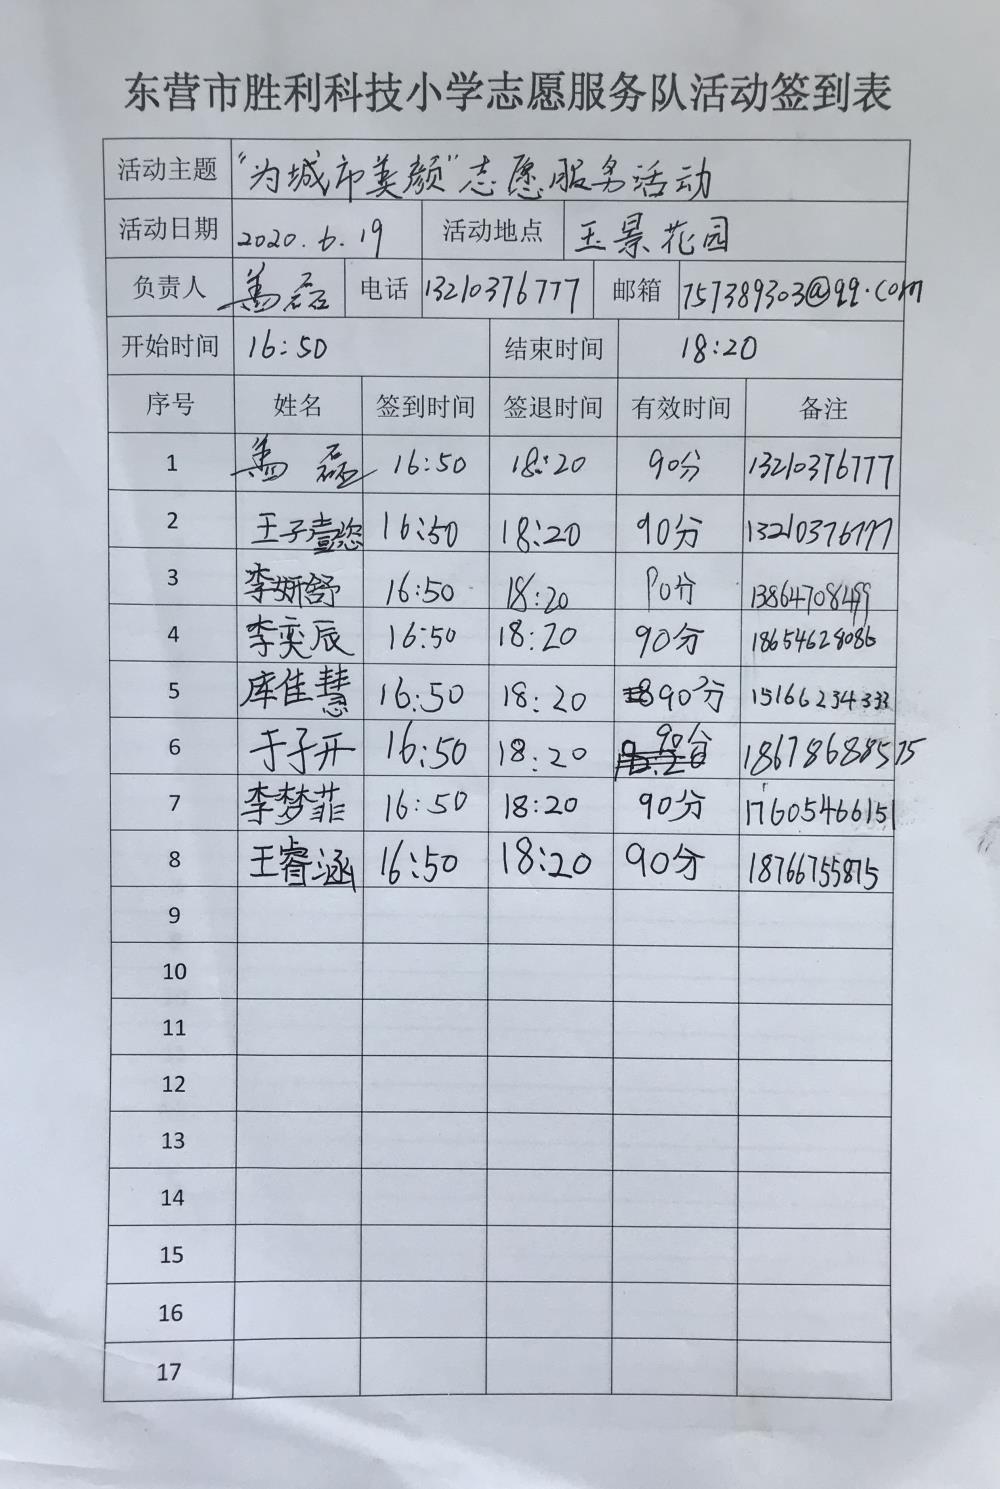 东营市胜利科技小学志愿服务队活动签到表
活动主题 "为城市美颜"志愿服务活动
活动日期 2020.6.19 活动地点 玉景花园
负责人 磊 电话 13210376777 邮箱 757389303@qq.com
开始时间 16:50 结束时间 18:20
序号 姓名 签到时间 签退时间 有效时间 备注
1 磊 16:50 18:20 90分 13210376777
2 王子壹 16:50 18:20 90分 13210376777
3 李妍舒 16:50 18:20 90分 13864708499
4 李奕辰 16:50 18:20 90分 18654628086
5 库佳慧 16:50 18:20 90分 15166234333
6 于子开 16:50 18:20 90分 18678688575
7 李梦菲 16:50 18:20 90分 17605466151
8 王睿涵 16:50 18:20 90分 18766755875
9
10
11
12
13
14
15
16
17